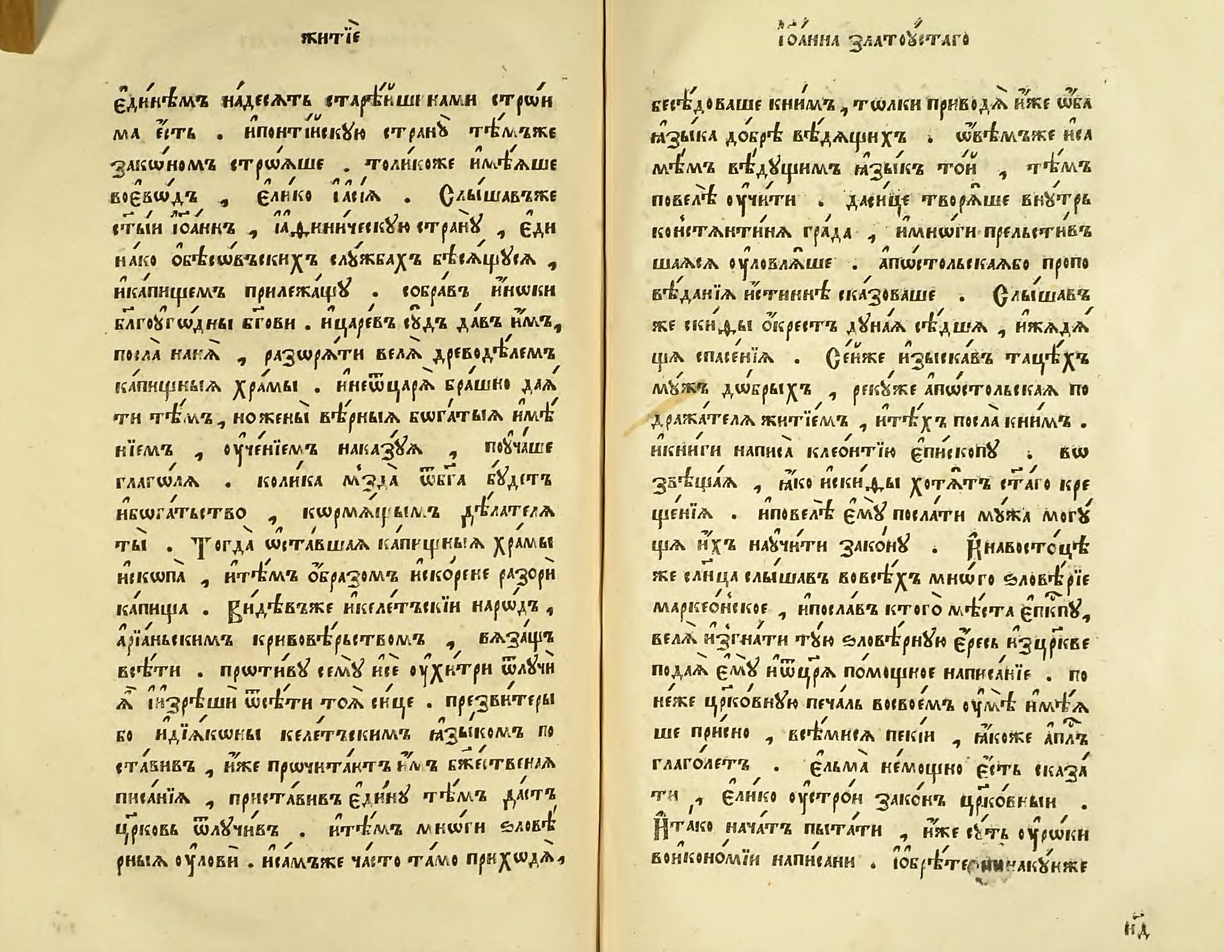 житїѐ
є҆ди́нѣмъ на́десѧть старѣ́йшинами стро́ѝ
ма є҆́сть . и҆понті́йскꙋю странꙋ̀ тѣ́мъже
зако́номъ строѧ́ше . толи́коже и҆мѣѧ́ше
воє҆вѡ́дъ , є҆ли́ко і҆асі́ѧ . Слы́шавъже
ст҃ы́и і҆ѡа́ннъ , і҆аѳини́ческꙋю странꙋ̀ , є҆ди
на́ко ѻ҆бѣсѡ́въскихъ слꙋ́жбахъ бѣсѧ́щꙋсѧ ,
и҆ка́пищемъ прилежа́щꙋ . собра́въ и҆́нѡки
бл҃гоꙋго́дны бг҃ови . и҆царе́въ сꙋ́дъ да́въ и҆́мъ,
посла̀ на́нѧ̀ , разѡрѧ́ти велѧ̀ древодѣ́лемъ
ка́пищныѧ хра́мы . и҆неѿцарѧ̀ бра́шно даѧ́
ти тѣ́мъ, ножены̀ вѣ́рныѧ бѡга́тыѧ и҆мѣ́
нїемъ , оу҆че́нїемъ наказꙋ́ѧ , поꙋча́ше
глаго́лѧ . коли́ка мъзда̀ ѿбг҃а бꙋ́детъ
и҆бѡга́тьство , кѡрмѧ́щымъ дѣ́лателѧ
ты̀ . Тогда̀ ѡ҆ста́вшаѧ ка́пищныѧ хра́мы
и҆скопа̀ , и҆тѣ́мъ ѻ҆́бразомъ и҆скоре́не разорѝ
ка́пища . Ви́дѣвъже и҆келе́тъскїи наро́дъ ,
а҆рїа́ньскимъ кривовѣ́рьствомъ , вѧ́защъ
всѣ́ти . прѡти́вꙋ семꙋ̀ и҆сѐ оу҆хитри ѿлꙋчѝ
ѧ҆̀ і҆изрѣшѝ ѿсѣ́ти тоѧ̀ си́це . презви́теры
бо и҆дїѧ́кѡны келе́тъскимъ ѧ҆зы́комъ по
ста́вивъ , и҆́же прѡчита́ютъ и҆́мъ бж҃е́ственаѧ
писа́нїѧ , приста́вивъ є҆ди́нꙋ тѣ́мъ да́стъ
цр҃ковь ѿлꙋчи́въ . и҆тѣ́мъ мнѡ́ги ѕловѣ́
рныѧ оу҆ловѝ . и҆са́мъже ча́сто та́мо приходѧ̀,
і҆ѡа́нна златоꙋ́стаго
бесѣ́доваше кни́мъ , тѡ́лки приводѧ̀ и҆́же ѻ҆́ба
ѧ҆зы́ка до́брѣ вѣ́дѧщихъ . ѡ҆вѣ́мъже и҆са
мѣ́мъ вѣ́дꙋщимъ ѧ҆зы́къ то́й , тѣ́мъ
повелѣ̀ оу҆чи́ти . даси́це творѧ́ше внꙋ́трь
ко́нстѧнтинѧ гра́да , и҆мнѡ́ги прельсти́въ
шаѧсѧ оу҆ловлѧ́ше . а҆пѡ́стольскаѧбо пропо
вѣ́данїѧ и҆́стиннѣ ска́зоваше . Слы́шавъ
же ски́ѳы ѻ҆́крестъ дꙋ́наѧ сѣ́дшѧ , и҆жѧдѧ́
щѧ спасе́нїѧ . Се́йже и҆зыска́въ таце́хъ
мꙋ́жъ дѡ́брыхъ , реку́же а҆пѡ́стольскаѧ по
дража́телѧ житїе́мъ , и҆тѣ́хъ посла̀ кни́мъ .
и҆кни́ги написа̀ клео́нтїю є҆пи́скопꙋ . вѡ
звѣща́ѧ , ѧ҆́ко и҆ски́ѳы хотѧ́тъ ст҃а́го кре
ще́нїѧ . и҆повелѣ̀ є҆мꙋ̀ посла́ти мꙋ́жа могꙋ́
щѧ и҆́хъ наꙋчи́ти зако́нꙋ . И҆навосто́цѣ
же сл҃нца слы́шавъ вовсѣ́хъ мнѡ́го ѕловѣ́рїе
маркео́нское , и҆посла́въ ктого̀ мѣ́ста є҆пк҃пꙋ,
велѧ̀ и҆згна́ти тꙋ́ю ѕловѣ́рнꙋю є҆́ресь и҆зцр҃кве
пода́ѧ є҆мꙋ̀ и҆ѿцр҃ѧ помо́щное написа́нїе . по
не́же цр҃ко́внꙋю печа́ль восвое́мъ оу҆мѣ̀ и҆мѣ́ѧ
ше при́сно , всѣ́мисѧ пекі́и , ѧ҆́коже а҆п҃лъ
глаго́летъ . є҆льма̀ не́мощно є҆́сть сказа́
ти , є҆ли́ко оу҆стро́и зако́нъ цр҃ко́вныи .
И҆та́ко нача́тъ пыта́ти , и҆́же сꙋ́ть оу҆рѡ́ки
воиконо́мїи напи́сани . і҆ѡбрѣ́те
н҃д